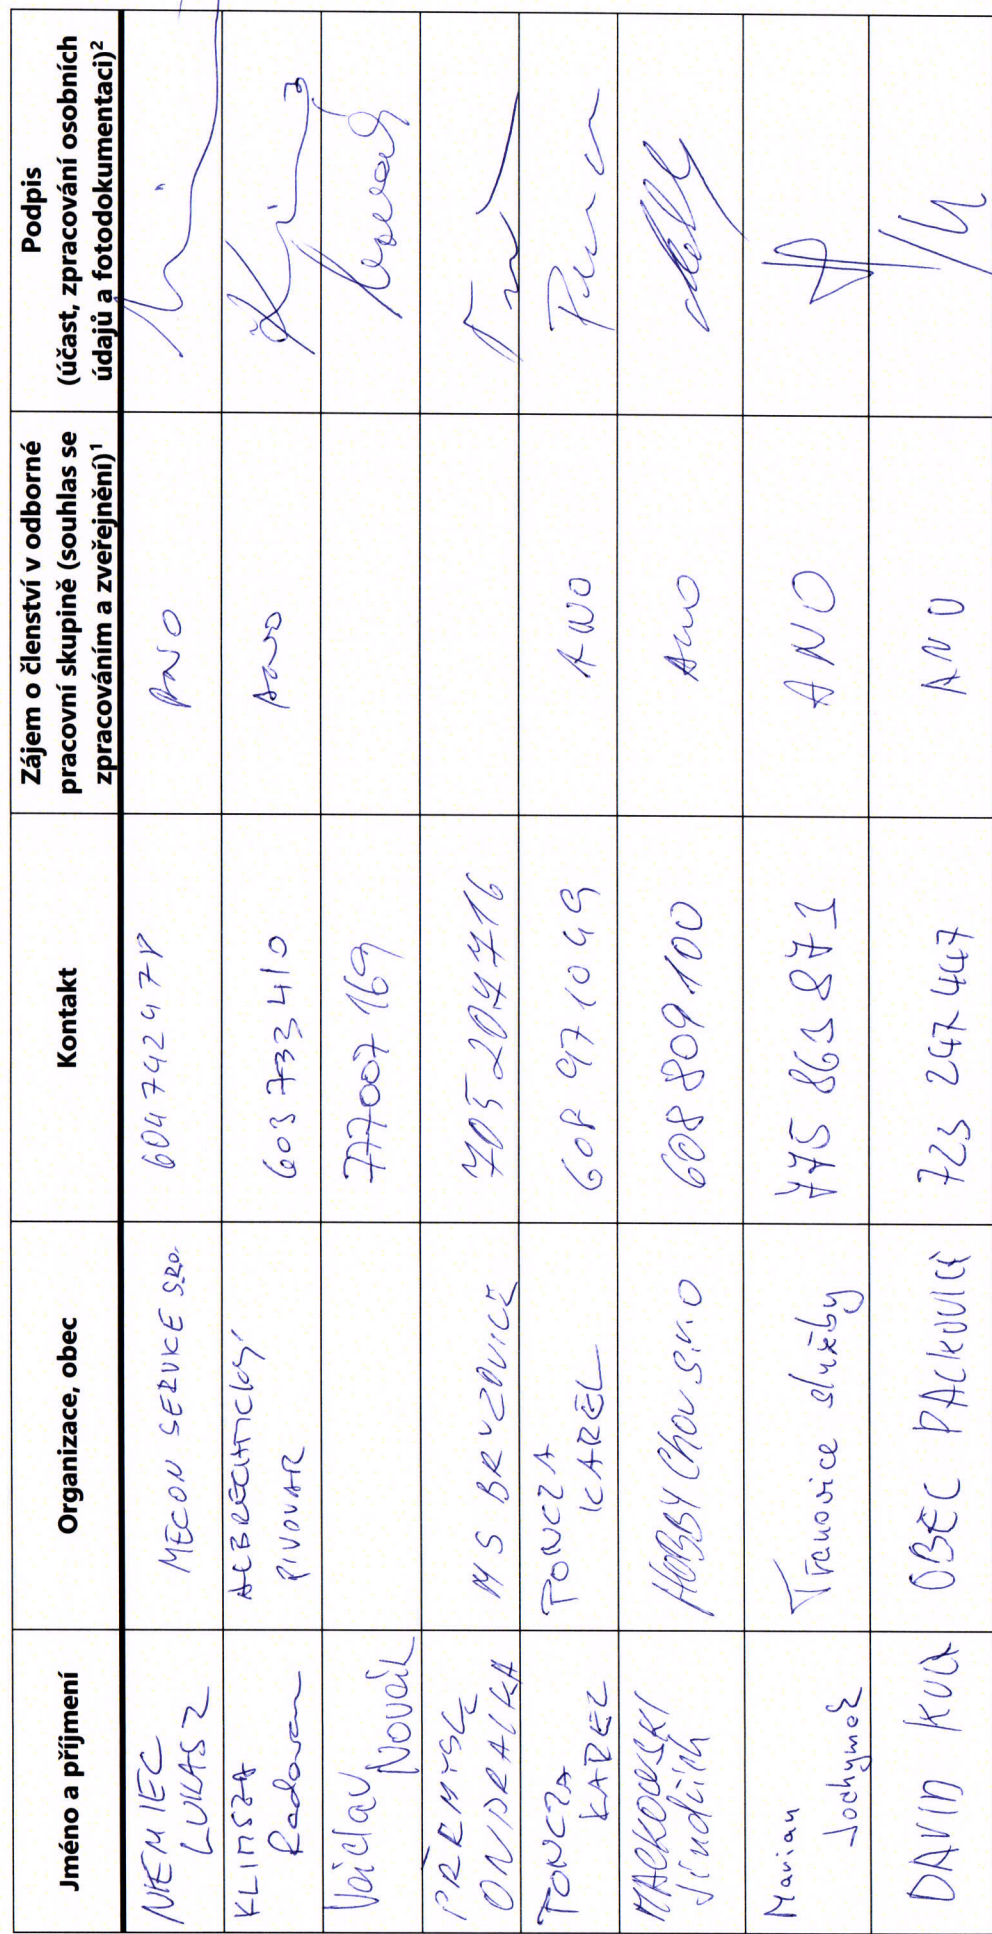 Jméno a příjmení
Organizace, obec
Kontakt
Zájem o členství v odborné
pracovní skupině (souhlas se
zpracováním a zveřejnění)¹
Podpis
(účast, zpracování osobních
údajů a fotodokumentaci)²
NIEMIEC
LUKASZ
MECON SERVICE SRO.
604742478
ANO
KLIMSZA
Radovan
ALBRECHTICKÝ
PIVOVAR
603 733 410
ANO
Václav
Novák
777007169
PŘEMYSL
ONDRAČKA
MS BRUZOVICE
705 204 716
TONCZA
KAREL
TONCZA
KAREL
608 971049
ANO
MACKOWSKI
Jindřich
HOBBY Chov s.r.o
608 809 100
Ano
Marian
Jochymek
Tranovice služby
775 861 871
ANO
DAVID
OBEC PALKOVICE
723 247 447
ANO